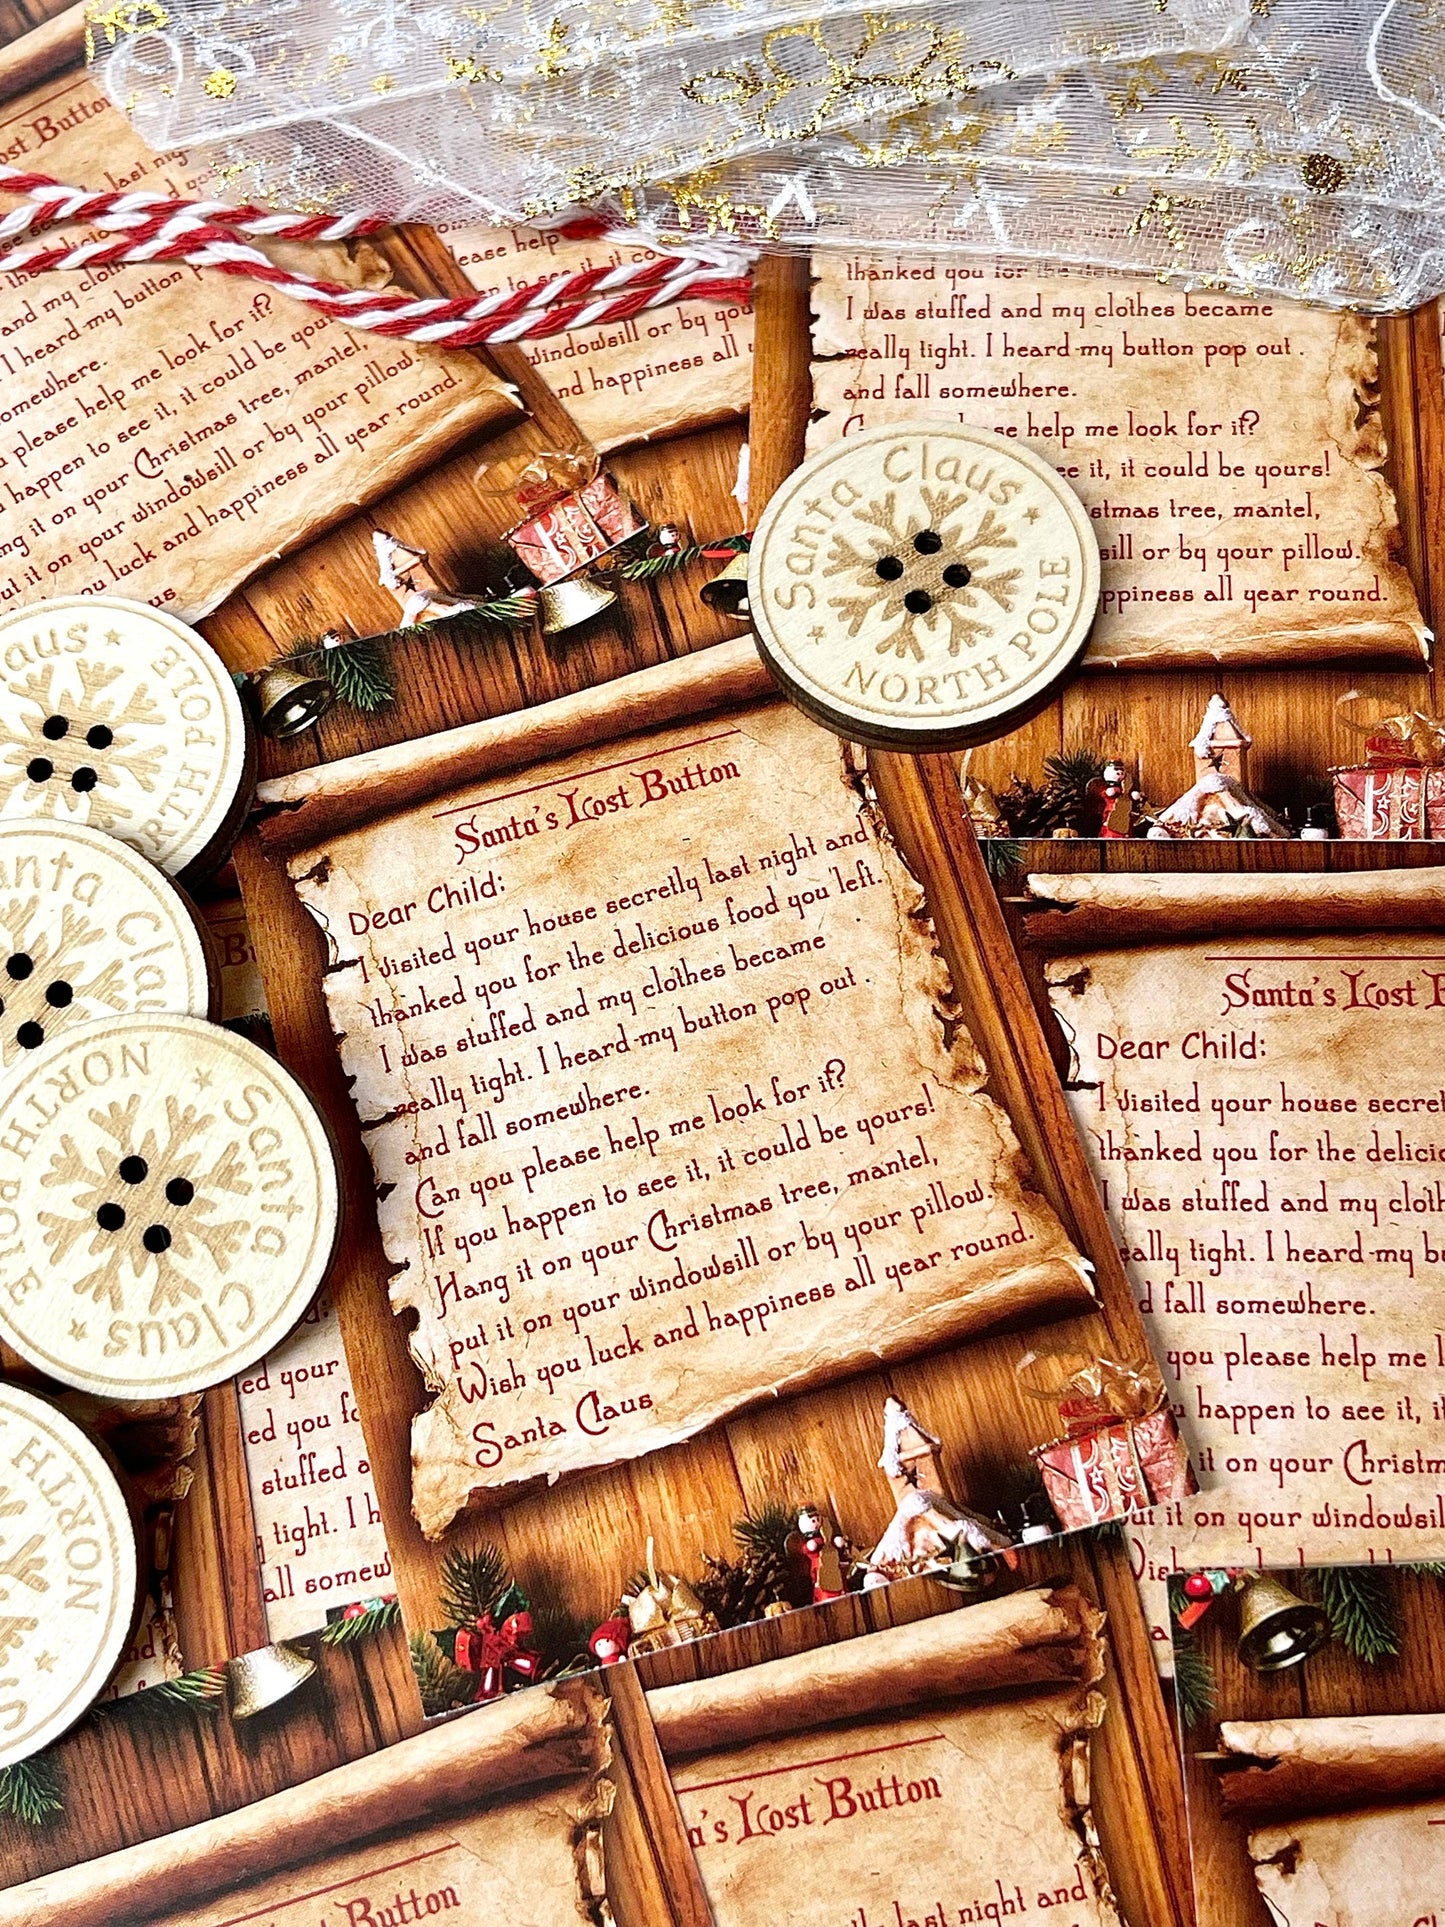 ost Button
last
I heard my button
and my
somewhere.
please help me look for it?
happen to see it, it could be your
ng it on your Christmas tree, mantel,
ut it on your windowsill or by your pillow.
ou luck and happiness all year round.
us
ease help
to see it, it co
windowsill or by you
nd happiness all y
thanked you for the
I was stuffed and my clothes became
really tight. I heard my button pop out .
and fall somewhere.
se help me look for it?
ee it, it could be yours!
stmas tree, mantel,
sill or by your pillow.
ppiness all year round.
Santa Claus
NORTH POLE
laus
RTH POLE
anta Clau
Santa Claus
NORTH POLE
NORTH
Santa's Lost Button
Dear Child:
I visited your house secretly last night and
thanked you for the delicious food you left.
I was stuffed and my clothes became
really tight. I heard my button pop out .
and fall somewhere.
Can you please help me look for it?
If you happen to see it, it could be yours!
Hang it on your Christmas tree, mantel,
put it on your windowsill or by your pillow.
Wish you luck and happiness all year round.
Santa Claus
Santa's Lost B
Dear Child:
I visited your house secret
thanked you for the delicio
I was stuffed and my cloth
eally tight. I heard my bu
d fall somewhere.
you please help me l
happen to see it, it
it on your Christm
ut it on your windowsil
ed your
ed you fo
stuffed a
tight. I h
all somew
a's Lost Button
last night and
st Button